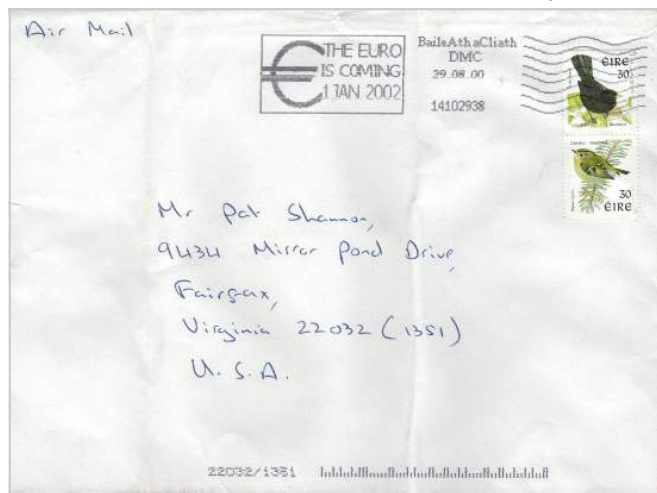 Air Mail
THE EURO
IS COMING
1 JAN 2002
Baile Ath a Cliath
DMC
29.08.00
14102938
ÉIRE
30
30
ÉIRE
Mr Pat Shannon,
9434 Mirror Pond Drive,
Fairfax,
Virginia 22032 (1351)
U.S.A.
22032/1351